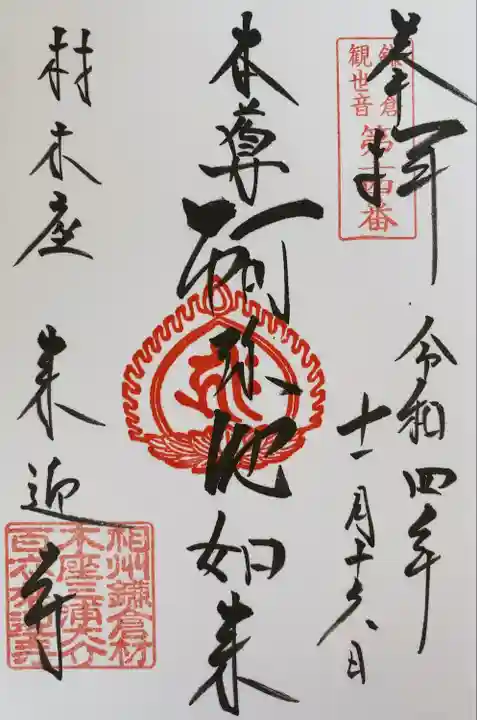 奉拝
鎌倉
観世音
第十四番
令和四年
十一月十六日
本尊
阿弥陀如来
材木座 来迎寺
相州鎌倉材
木座三浦大介